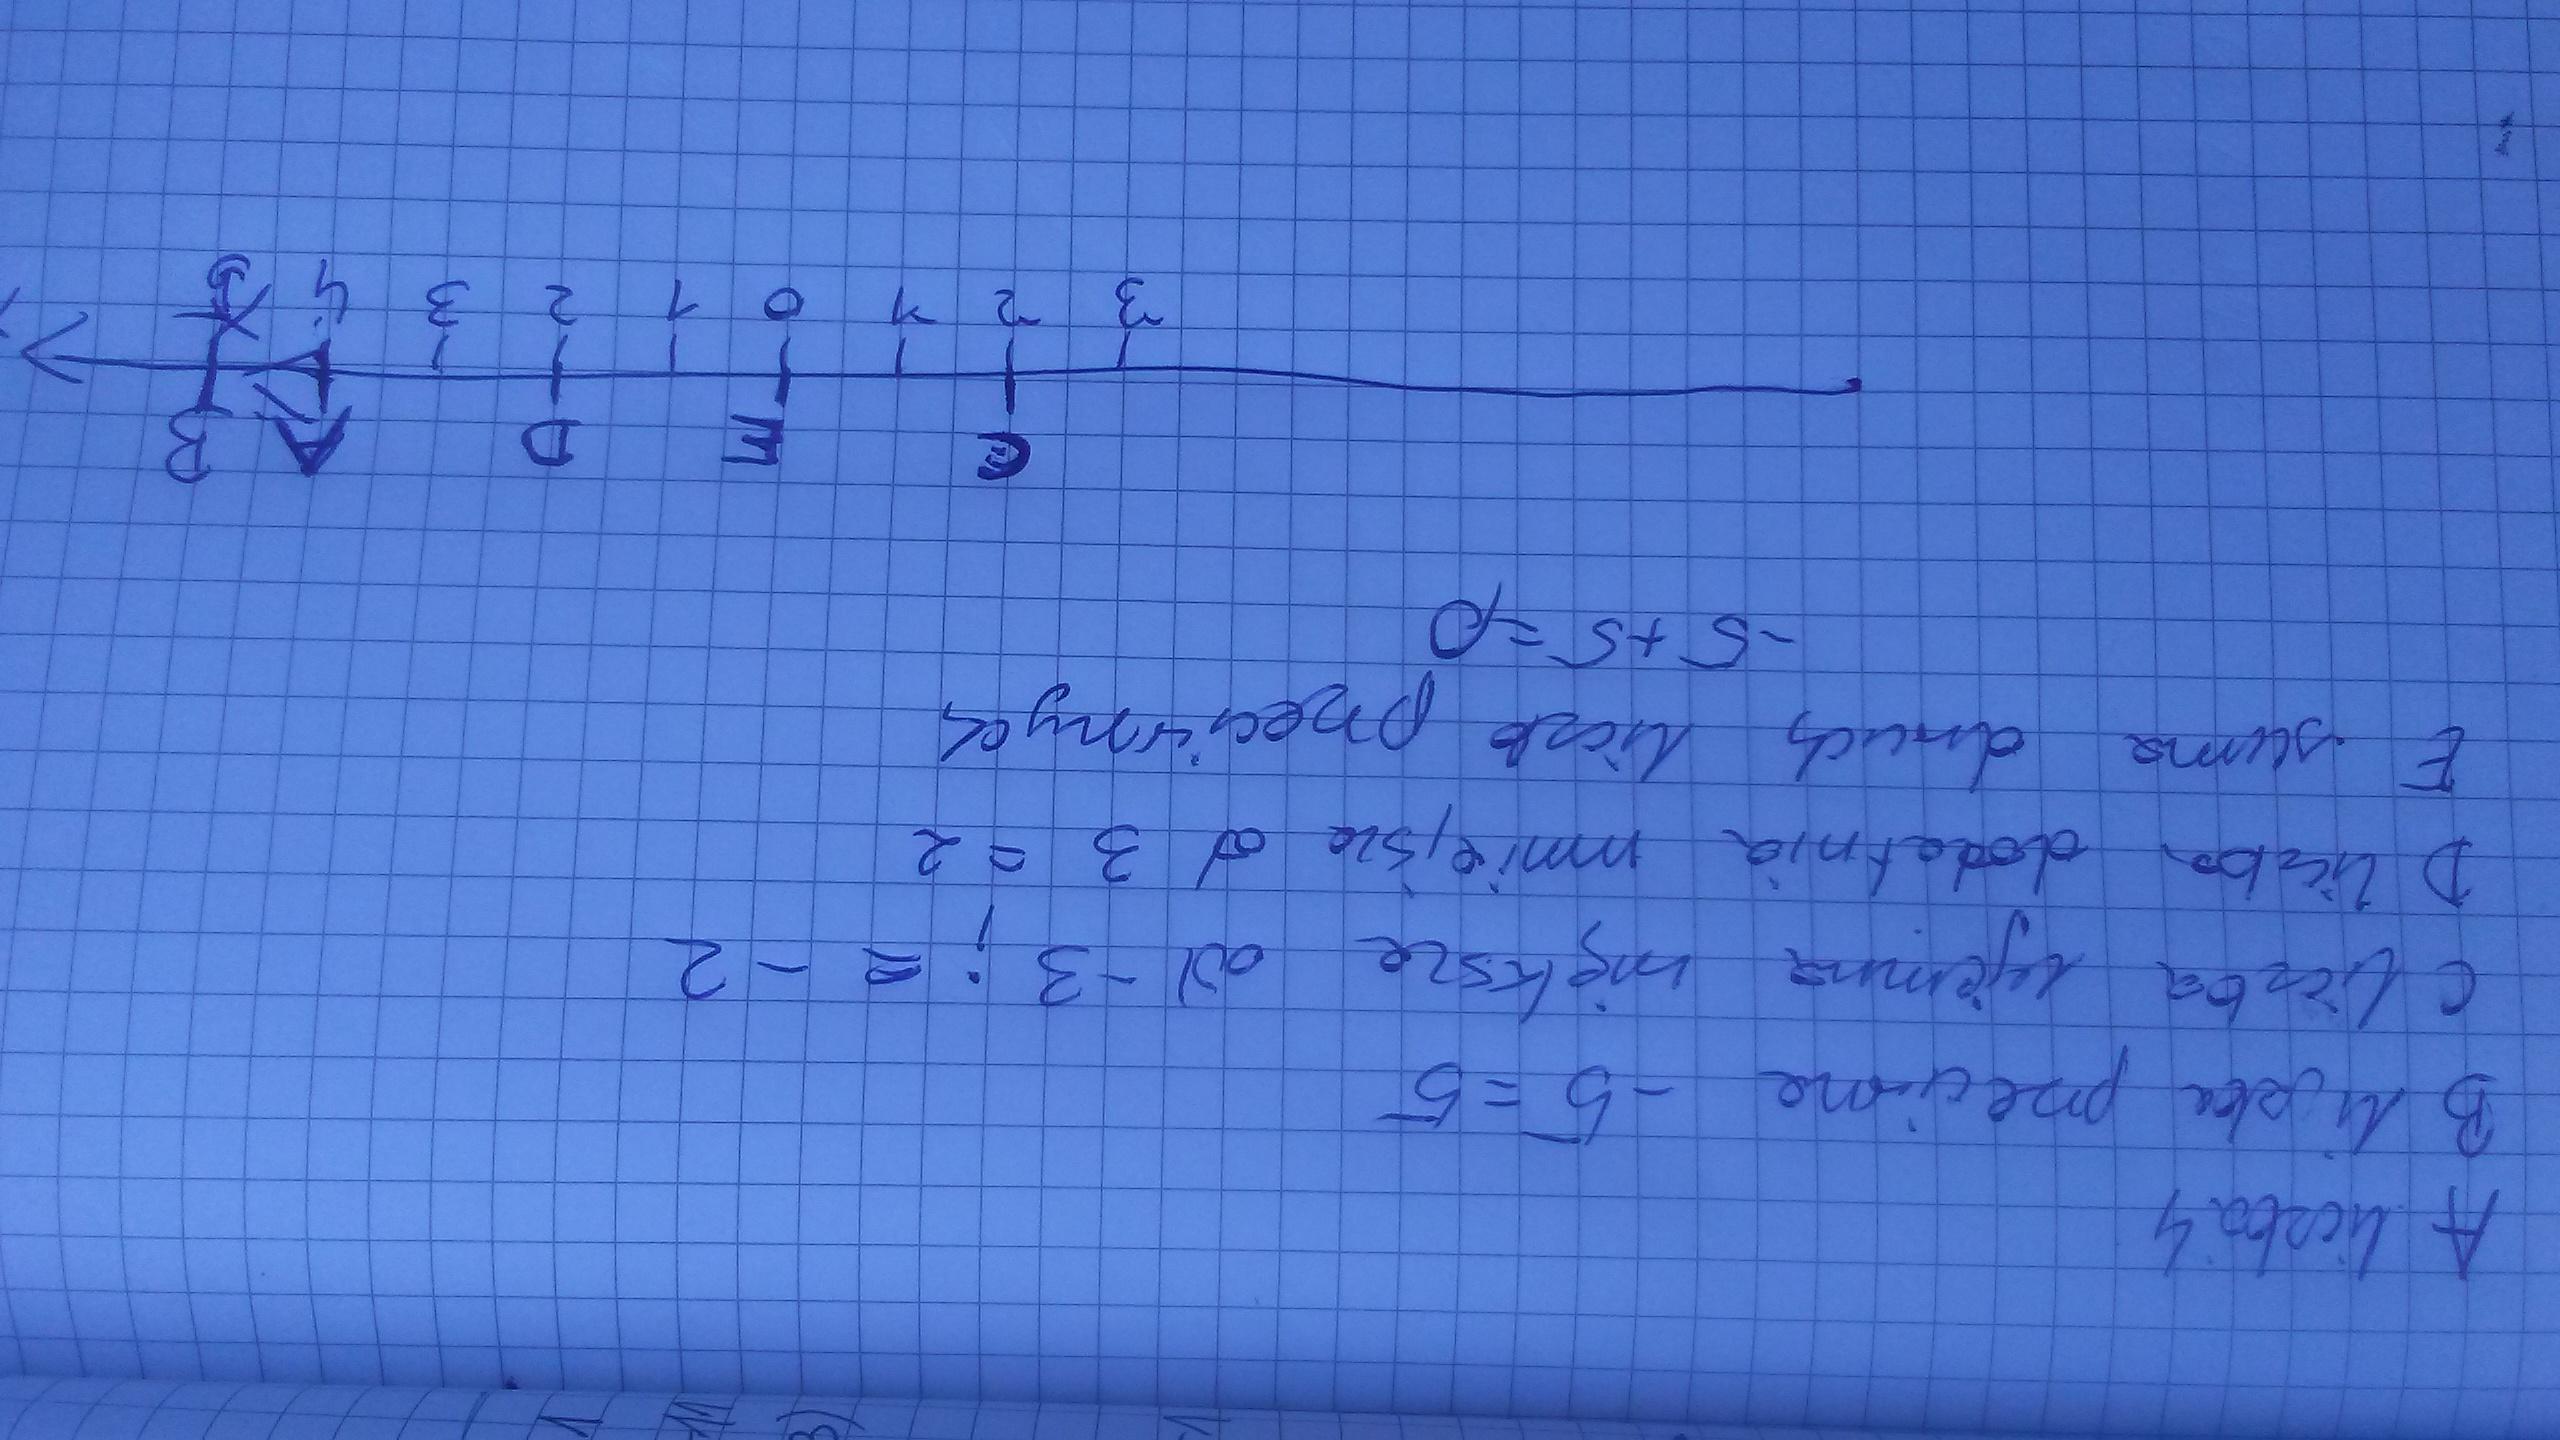 A liczba 4
B liczba pneciwna -5 = 5
C liczba ujemna większa od -3 ; = -2
D liczba dodatnia mniejsza od 3 = 2
E suma dwuch liczb pneciwnych
-5 + 5 = 0
C E D A B
-3 -2 -1 0 1 2 3 4 5